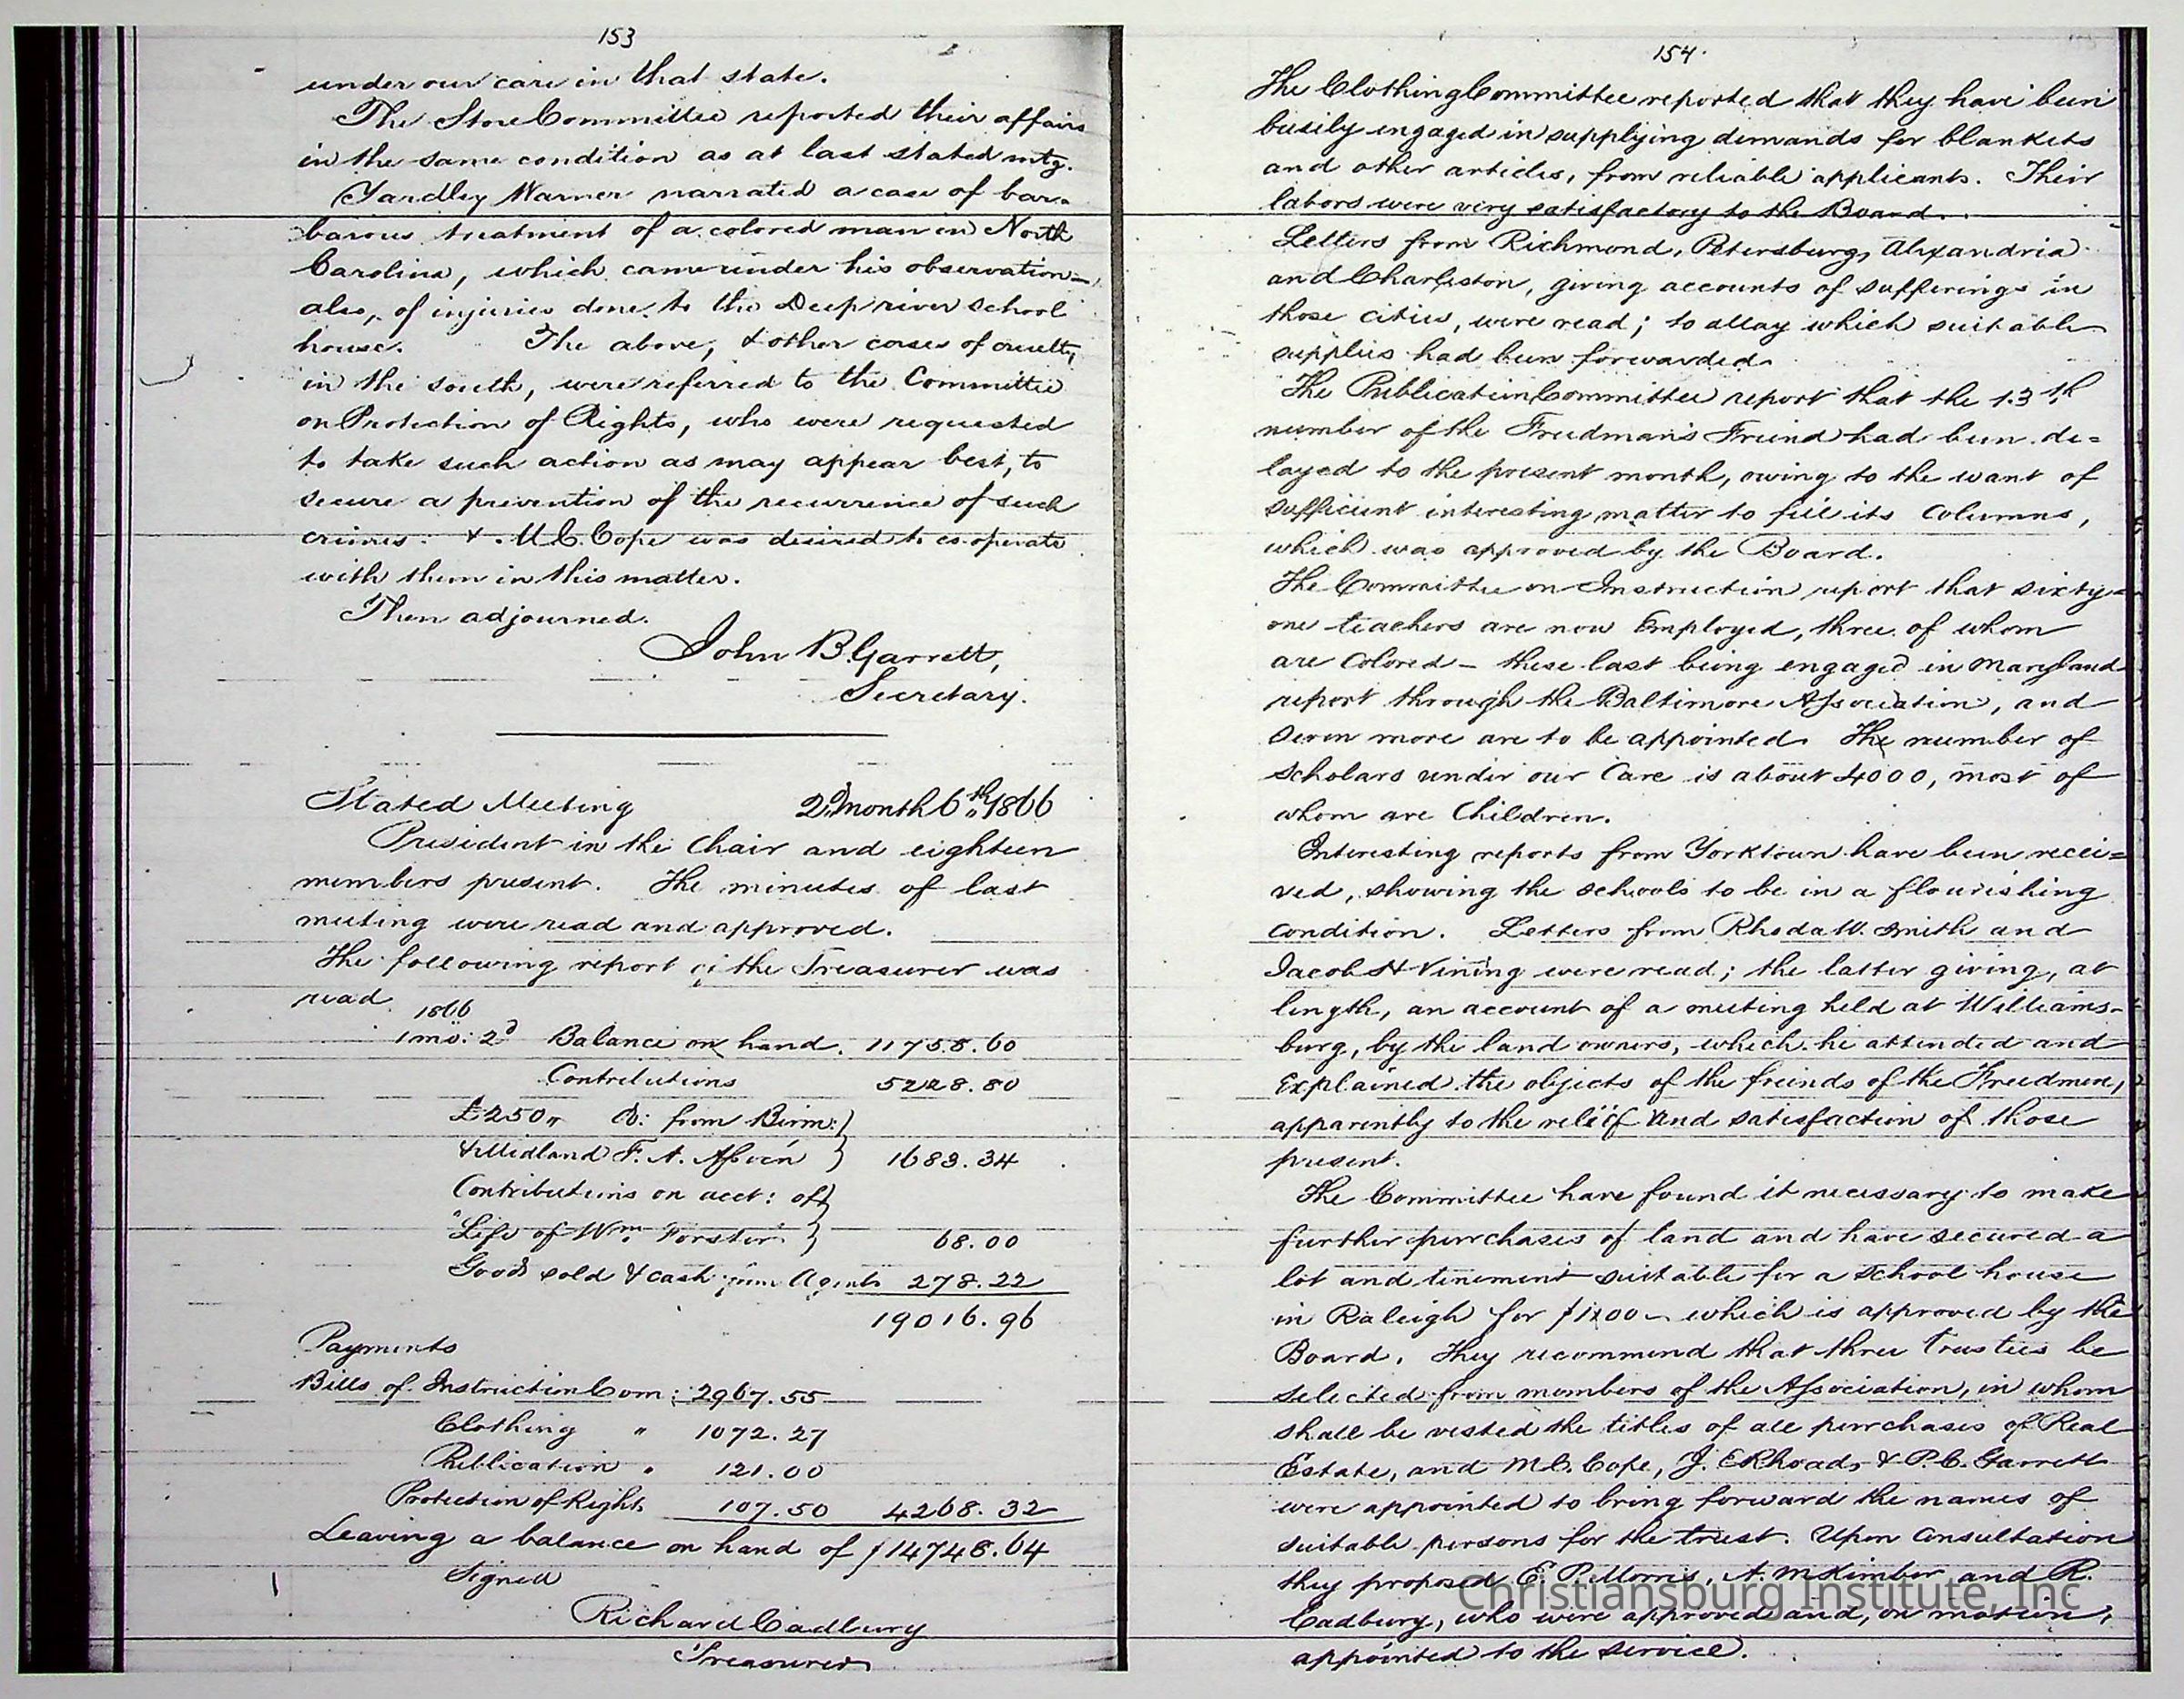 153
under our care in that state.
The Store Committee reported their affairs
in the same condition as at last stated mtg.
Yardley Warner narrated a case of bar-
barous treatment of a colored man in North
Carolina, which came under his observation—
also, of injuries done to the Deep river School
house. The above, & other cases of cruelty
in the south, were referred to the Committee
on Protection of Rights, who were requested
to take such action as may appear best, to
secure a prevention of the recurrence of such
crimes. & M. C. Cope was desired to co-operate
with them in this matter.
Then adjourned.
John B. Garrett,
Secretary.
Stated Meeting 2d month 6th 1866
President in the Chair and eighteen
members present. The minutes of last
meeting were read and approved.
The following report of the Treasurer was
read.
1866
1 mo: 2d Balance on hand. 11758.60
Contributions 5228.80
£250 „ D: from Birm:
& Midland F. A. Assocn 1683.34
Contributions on acct: of
"Life of Wm. Forster" 68.00
Goods sold & cash from Agents 278.22
19016.96
Payments
Bills of Instruction Com: 2967.55
Clothing " 1072.27
Publication " 121.00
Protection of Rights 107.50 4268.32
Leaving a balance on hand of $14748.64
Signed
Richard Cadbury
Treasurer
154.
The Clothing Committee reported that they have been
busily engaged in supplying demands for blankets
and other articles, from reliable applicants. Their
labors were very satisfactory to the Board.
Letters from Richmond, Petersburg, Alexandria
and Charleston, giving accounts of sufferings in
those cities, were read; to allay which suitable
supplies had been forwarded.
The Publication Committee report that the 13th
number of the Freedman's Freind had been de=
layed to the present month, owing to the want of
sufficient interesting matter to fill its columns,
which was approved by the Board.
The Committee on Instruction report that sixty-
one teachers are now Employed, three of whom
are Colored — these last being engaged in Maryland
report through the Baltimore Association, and
seven more are to be appointed. The number of
Scholars under our Care is about 4000, most of
whom are Children.
Interesting reports from Yorktown have been recei=
ved, showing the schools to be in a flourishing
condition. Letters from Rhoda W. Smith and
Jacob H Vining were read; the latter giving, at
length, an account of a meeting held at Williams-
burg, by the land owners, which he attended and
Explained the objects of the freinds of the Freedmen,
apparently to the relief and satisfaction of those
present.
The Committee have found it necessary to make
further purchases of land and have secured a
lot and tenement suitable for a School house
in Raleigh for which is approved by the
Board. They recommend that three Trustees be
selected from members of the Association, in whom
shall be vested the titles of all purchases of Real
Estate, and M. C. Cope, J. E Rhoads & P. C. Garrett
were appointed to bring forward the names of
suitable persons for the trust. Upon Consultation
they proposed E. P. Morris, A. M Kimber and R.
Cadbury, who were approved and, on motion,
appointed to the service.
Christiansburg Institute, Inc